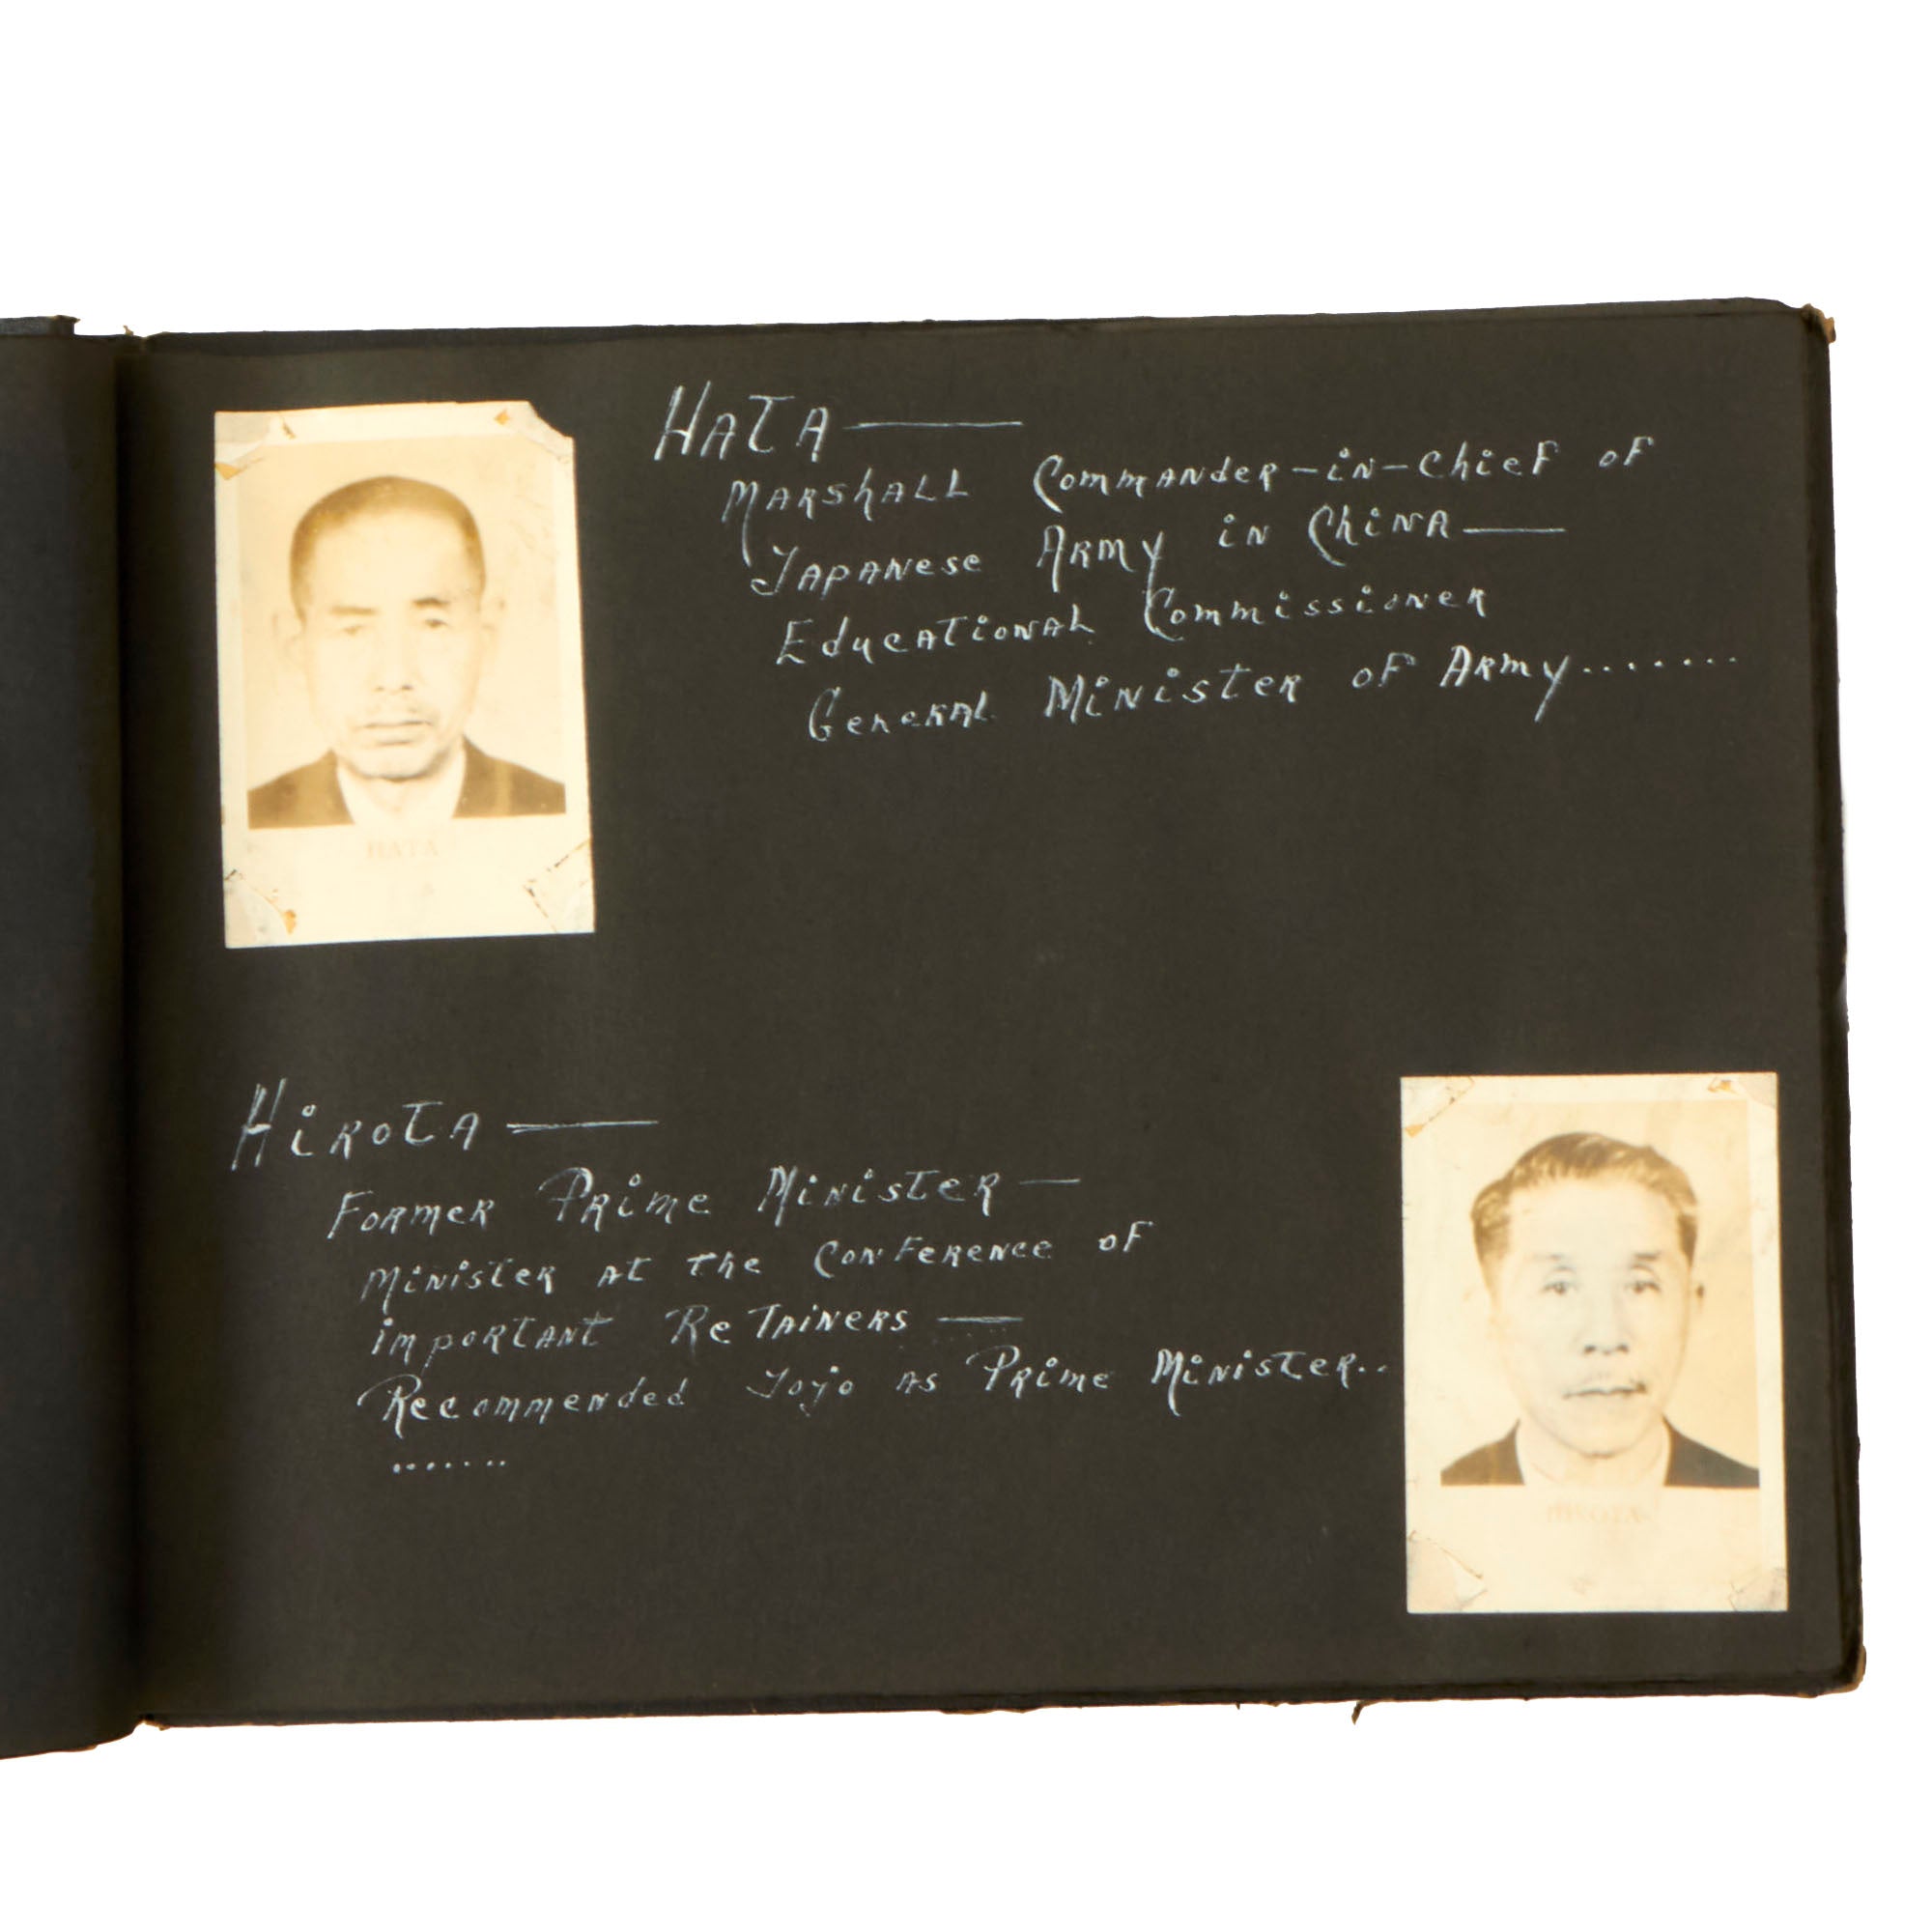 HATA —
MARSHALL COMMANDER-in-Chief of
JAPANESE ARMY in China —
Educational Commissioner
General Minister of Army.......
HATA
Hirota —
Former Prime Minister —
Minister at the Conference of
important Retainers —
Recommended Tojo as Prime Minister..
.......
HIROTA